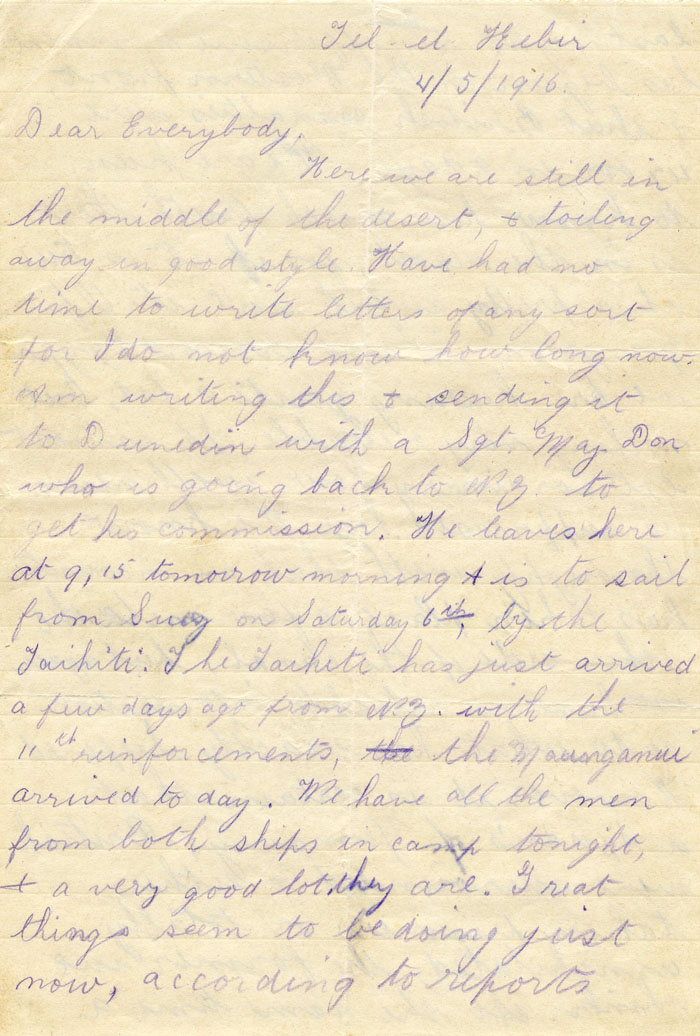 Tel-el-Kebir
4/5/1916.
Dear Everybody,
Here we are still in
the middle of the desert, & toiling
away in good style. Have had no
time to write letters of any sort
for I do not know how long now.
Am writing this & sending it
to Dunedin with a Sgt. Maj. Don
who is going back to N.Z. to
get his commission. He leaves here
at 9,15 tomorrow morning & is to sail
from Suez on Saturday 6th, by the
Taihiti. The Taihiti has just arrived
a few days ago from N.Z. with the
11th reinforcements, the the Maunganui
arrived to day. We have all the men
from both ships in camp tonight,
& a very good lot, they are. Great
things seem to be doing just
now, according to reports